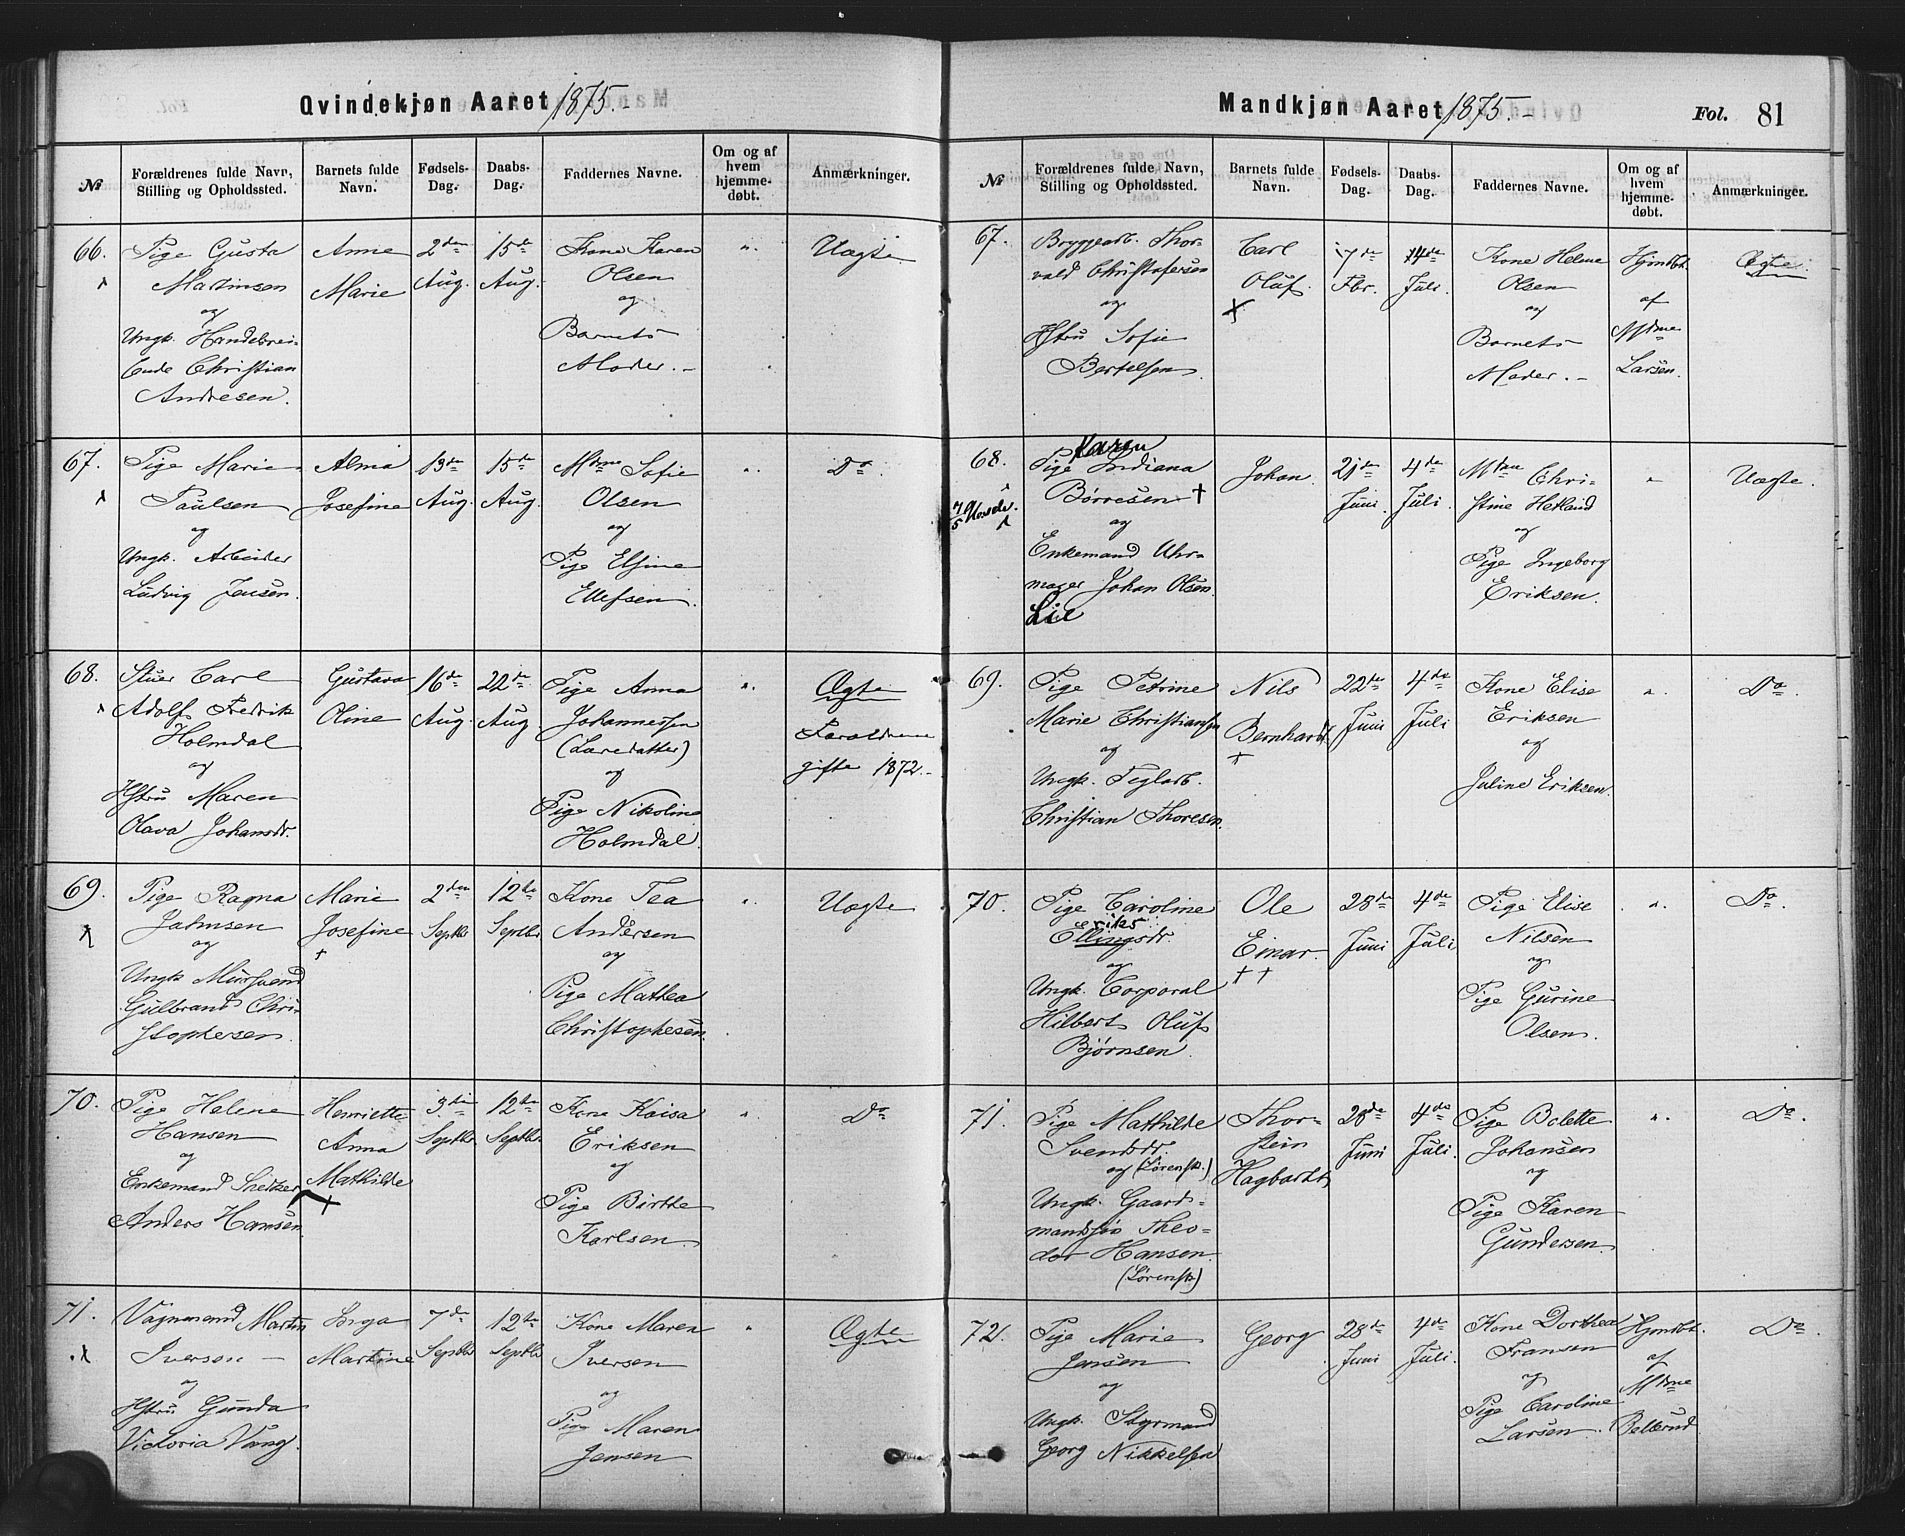 Qvindekjøn Aaret 1875.
№
Forældrenes fulde Navn,
Stilling og Opholdssted.
Barnets fulde
Navn.
Fødsels-
Dag.
Daabs-
Dag.
Faddernes Navne.
Om og af
hvem
hjemme-
døbt.
Anmærkninger.
66.
Pige Gusta
Martinsen
og
Ungk. Handebrei-
ende Christian
Andresen.
Anne
Marie
2den
Aug.
15de
Aug.
Kone Karen
Olsen
og
Barnets
Moder.
Uægte
67.
Pige Marie
Paulsen
og
Ungk. Arbeider
Ludvig Jensen.
Alma
Josefine
13de
Aug.
15de
Aug.
Mdme Sofie
Olsen
og
Pige Elfine
Ellefsen.
Do.
68.
Stuer Carl
Adolf Fredrik
Holmdal
og
Hstru Maren
Olava Johansdr.
Gustava
Oline
16de
Aug.
22de
Aug.
Pige Anna
Johannessen
(Laredatter)
og
Pige Nikoline
Holmdal.
Ægte
Foraldrene
gifte 1872.
69.
Pige Ragna
Jahnsen
og
Ungk. Mursvend
Gulbrand Chri-
stophersen.
Marie
Josefine
2den
Septbr
12te
Septbr
Kone Tea
Andersen
og
Pige Mathea
Christophesen.
Uægte
70.
Pige Helene
Hansen
og
Enkemand Snedker
Anders Hansen
Henriette
Anna
Mathilde
3die
Septbr
12te
Septbr
Kone Kaisa
Eriksen
og
Pige Birthe
Karlsen.
Do
71.
Vognmand Martin
Iversen
og
Hstru Gunda
Victoria Vang.
Inga
Martine
7de
Septbr
12te
Septbr
Kone Maren
Iversen
og
Pige Maren
Jensen
Ægte
Mandkjøn Aaret 1875.
Fol. 81
№
Forældrenes fulde Navn,
Stilling og Opholdssted.
Barnets fulde
Navn.
Fødsels-
Dag.
Daabs-
Dag.
Faddernes Navne.
Om og af
hvem
hjemme-
døbt.
Anmærkninger.
67.
Bryggearb. Thor-
vald Christofersen
og
Hstru Sofie
Bertelsen.
Carl
Oluf.
7de
Fbr.
14de
Juli.
Kone Helene
Olsen
og
Barnets
Moder.
Hjmdbt.
af
Mdme
Larsen.
Ægte.
68.
Karen
Pige Indiana
Børresen †
og
Enkemand Uhr-
mager Johan Olsen.
Lie
Johan.
21de
Juni.
4de
Juli.
Mdme Chri-
stine Hetland
og
Pige Ingeborg
Eriksen.
Uægte.
69.
Pige Petrine
Marie Christiansen
og
Ungk. Teglarb.
Christian Thoresen.
Nils
Bernhard.
22de
Juni
4de
Juli
Kone Elise
Eriksen
og
Juline Eriksen.
Do.
70.
Pige Caroline
riks
Ellingsdr.
og
Ungk. Corporal
Hilbert Oluf
Bjørnsen.
Ole
Einar.
† †
28de
Juni
4de
Juli
Pige Elise
Nilsen
og
Pige Gurine
Olsen.
Do.
71.
Pige Mathilde
Svendsdr.
og (Lørensk.)
Ungk. Gaard-
mandssøn Theo-
dor Hansen.
(Lørensk)
Thor-
stein
Hagbarth
28de
Juni
4de
Juli.
Pige Bolette
Johansen
og
Pige Karen
Gundersen.
Do.
72.
Pige Marie
Jensen
og
Ungk. Styrmand
Georg Nikkelsen
Georg
28de
Juni
4de
Juli.
Kone Dorthea
Fransen
og
Pige Caroline
Larsen.
Hjmdbt.
af
Mdme
Do.